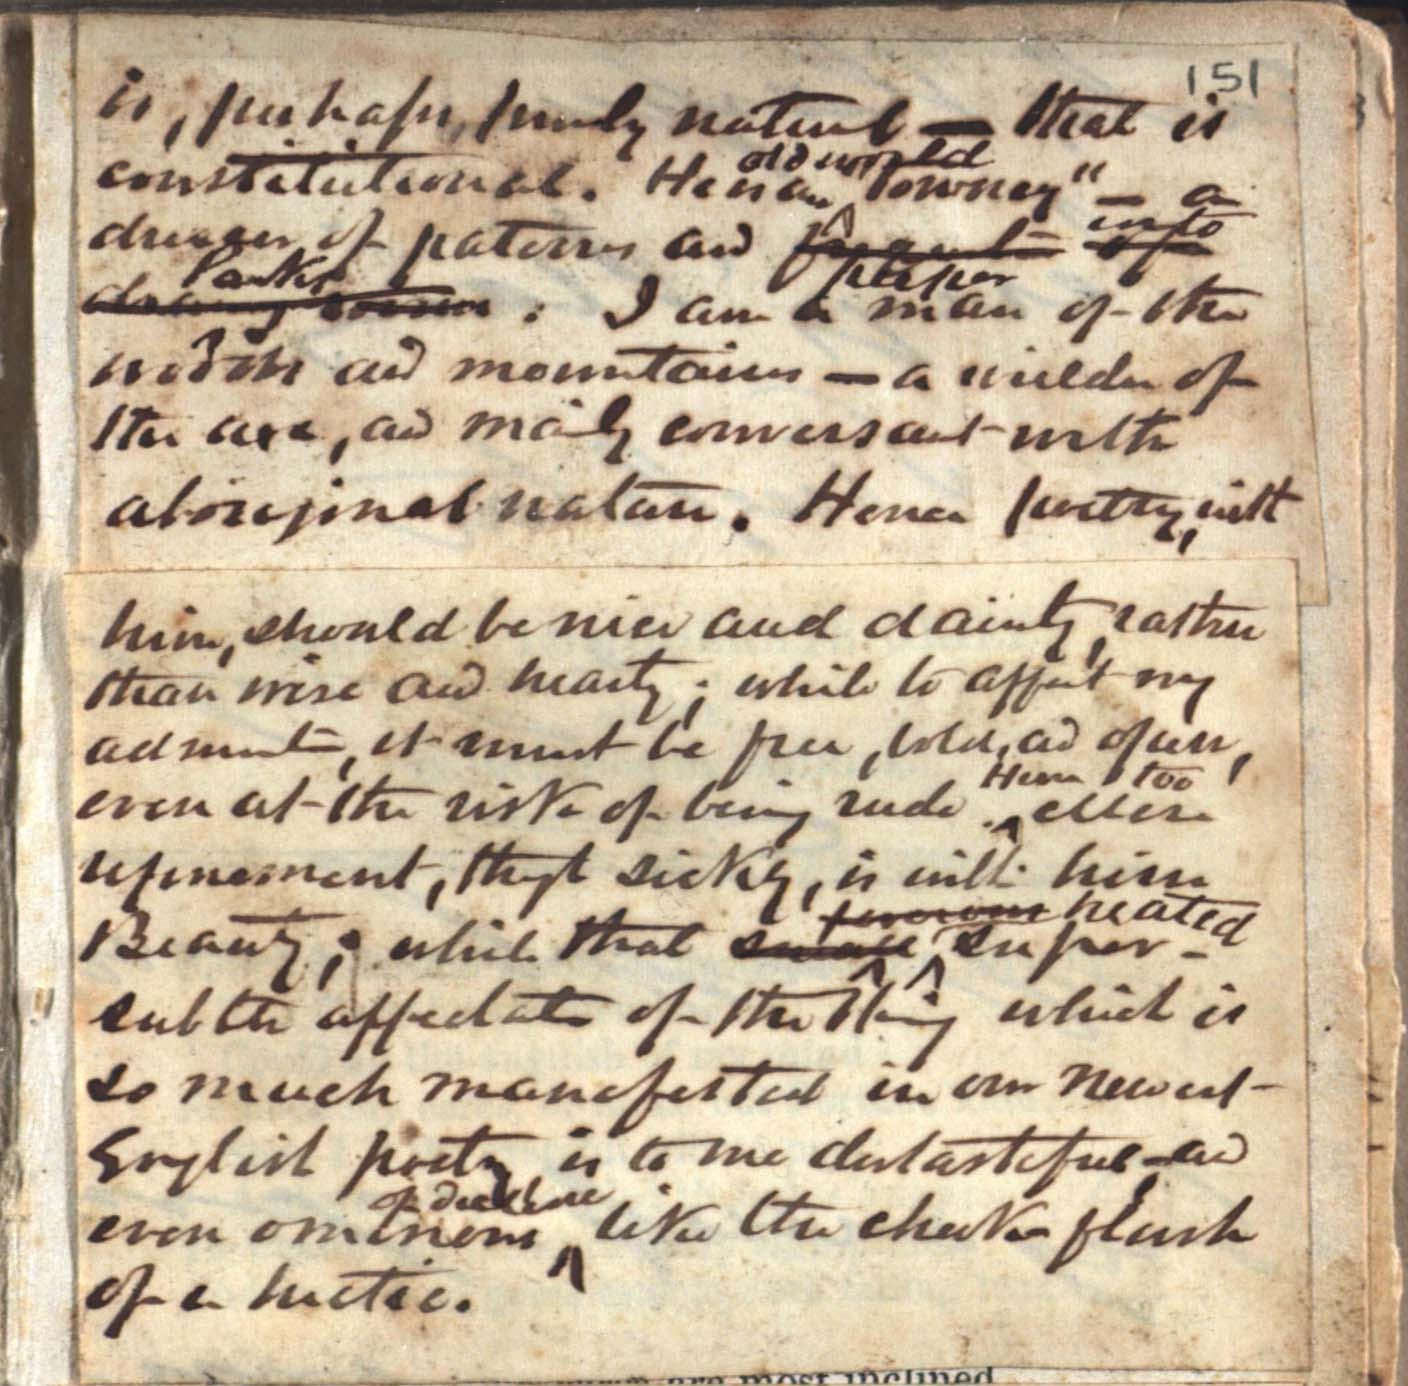 151
is, perhaps, purely natural — that is
constitutional. He is an old world "Towney" — a
dresser of paterres and into
Parks : I am a man of the
proper
woods and mountains — a wielder of
the axe, and mainly conversant with
aboriginal nature. Hence poetry, with
him, should be nice and dainty, rather
than wise and hearty; while to affect my
admiratn, it must be free, bold, and open,
even at the risk of being rude. Hence too
refinement, though sickly, is with him
heated
Beauty; while that super-
subtle affectatn of the thing which is
so much manifested in our newest
English poetry is to me distasteful and
of decline
even ominous, like the cheek-flush
of a hectic.
are most inclined